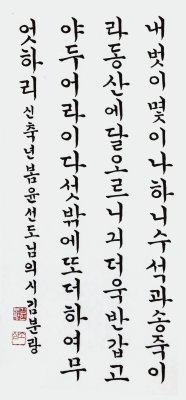 내벗이몇이나하니수석과송죽이
라동산에달오르니긔더욱반갑고
야두어라이다섯밖에또더하여무
엇하리 신축년봄윤선도님의시